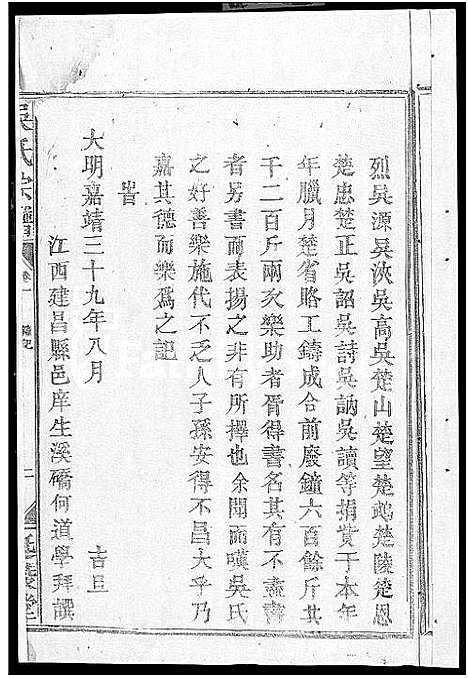 烈吳源吳浹吳高吳楚山楚望楚屹楚陵楚恩
楚忠楚正吳詔吳詩吳訥吳讀等捐貲于本年
年臘月楚省賂工鑄成合前廢鐘六百餘斤共
千二百斤兩次樂助者胥得書名其有不盡書
者另書而表揚之非有所擇也余聞而嘆吳氏
之好善樂施代不乏人子孫安得不昌大乎乃
嘉其德而樂爲之記
旹
大明嘉靖三十九年八月 吉旦
江西建昌縣邑庠生溪礄何道學拜譔
吳氏宗譜
卷一 雜記 二